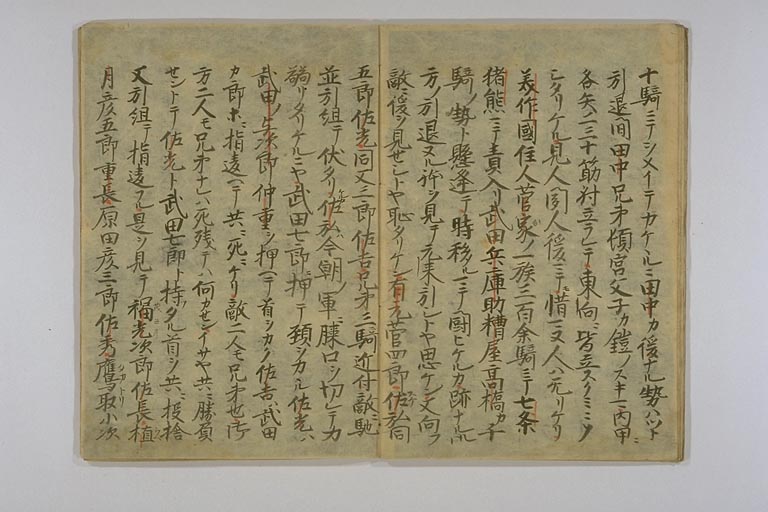 十騎ニテシメイテカケルニ田中カ後ナル勢ハツト
引退間田中兄弟頓宮父子カ鎧ノスキ内甲ニ
各矢ノ三十筋射立ラレテ東向ニ皆立スクミニソ
シタリケル見人聞人後ニテ惜マヌ人ハ无リケリ
美作國住人菅家ノ一族三百余騎ニテ七条
猪熊ニテ責入リ武田兵庫助糟屋高橋カ一千
騎ノ勢ト懸逢テ時移ルニテ闘ヒケルカ跡ナル
方ノ引退ヌル許ヲ見テ元来引シトヤ思ケン又向フ
敵ニ後ヲ見セシトヤ恥タリケン有元菅四郎佐弘同
五郎佐光同又三郎佐吉兄弟三騎近付敵ニ馳
並引組テ伏タリ佐弘今朝ノ軍ニ膝口ヲ切レテカ
弱リタリケルニヤ武田七郎ニ押ヘテ頚ヲカル佐光ハ
武田ノ与次郎仲重ヲ押ヘテ首ヲカク佐吉ハ武田
カ郎等ニ指違ヘテ共ニ死ニケリ敵二人モ兄弟也御
方二人モ兄弟ナレハ死残テハ何カセンイサヤ共ニ勝負
セントテ佐光ト武田七郎ト持タル首ヲ共ニ投捨
又引組テ指違フル是ヲ見テ福光次郎佐長植
月彦五郎重長原田彦三郎佐秀鷹取小次